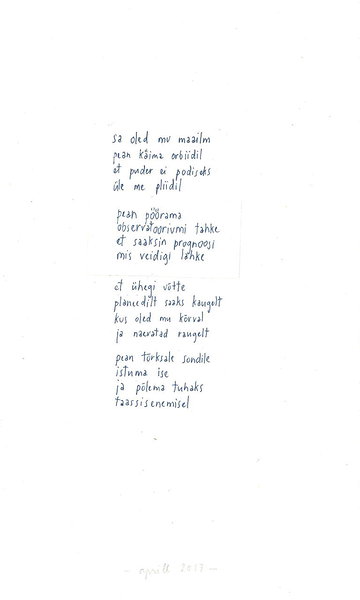 sa oled mu maailm
pean käima orbiidil
et puder ei podiseks
üle me pliidil
pean pöörama
observatooriumi tahke
et saaksin prognoosi
mis veidigi lahke
et ühegi võtte
planeedilt saaks kaugelt
kus oled mu kõrval
ja naeratad raugelt
pean tõrksale sondile
istuma ise
ja põlema tuhaks
taassisenemisel
- aprill 2013 -